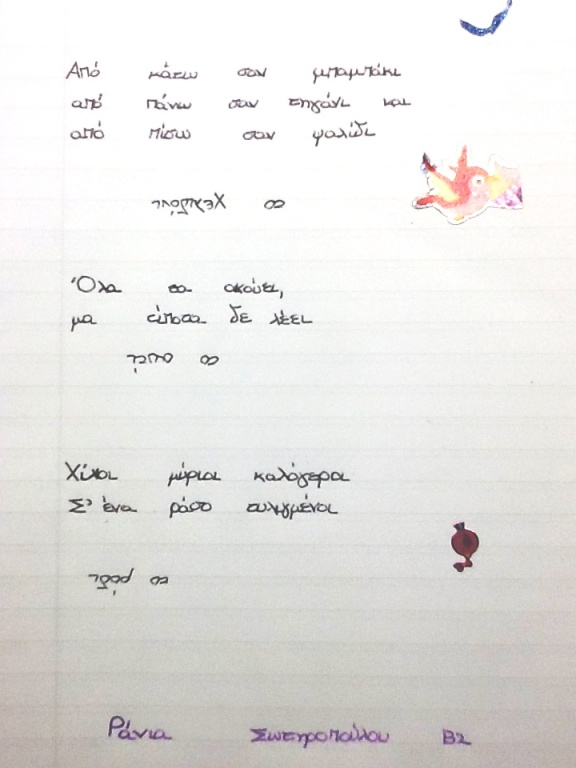 Από κάτω σαν μπαμπάκι
από πάνω σαν τηγάνι και
από πίσω σαν ψαλίδι
το χελιδόνι
Όλα τα ακούει,
μα τίποτα δε λέει
το αυτί
Χίλιοι μύριοι καλόγεροι
Σ' ένα ράσο τυλιγμένοι
το ρόδι
Ράνια Σωτηροπούλου Β2